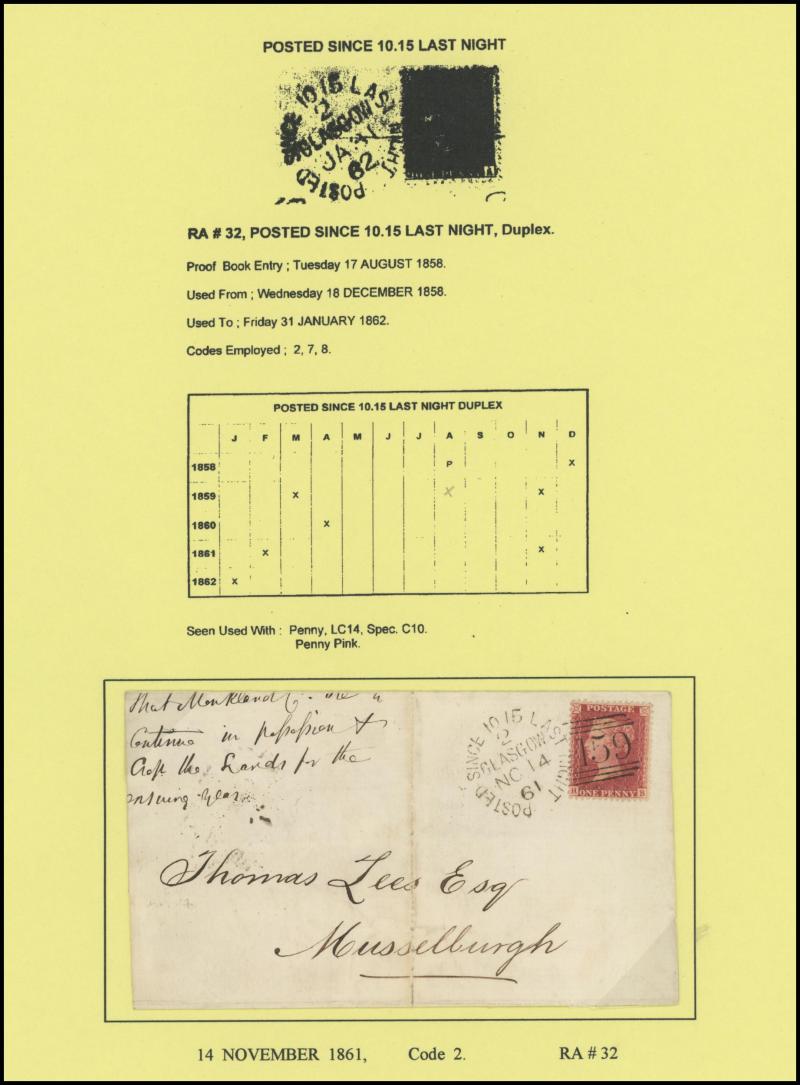 POSTED SINCE 10.15 LAST NIGHT
POSTED SINCE 10 15 LAST NIGHT
2
GLASGOW
JA 31
62
A
RA # 32, POSTED SINCE 10.15 LAST NIGHT, Duplex.
Proof Book Entry ; Tuesday 17 AUGUST 1858.
Used From ; Wednesday 18 DECEMBER 1858.
Used To ; Friday 31 JANUARY 1862.
Codes Employed ; 2, 7, 8.
POSTED SINCE 10.15 LAST NIGHT DUPLEX
J F M A M J J A S O N D
1858 P X
1859 X X X
1860 X
1861 X X
1862 X
Seen Used With : Penny, LC14, Spec. C10.
Penny Pink.
that Monkland
Continue in possession &
Crop the Lands for the
ensuing year
POSTED SINCE 10 15 LAST NIGHT
2
GLASGOW
NO 14
61
POSTAGE
159
H ONE PENNY B
Thomas Lees Esq
Musselburgh
14 NOVEMBER 1861, Code 2. RA # 32